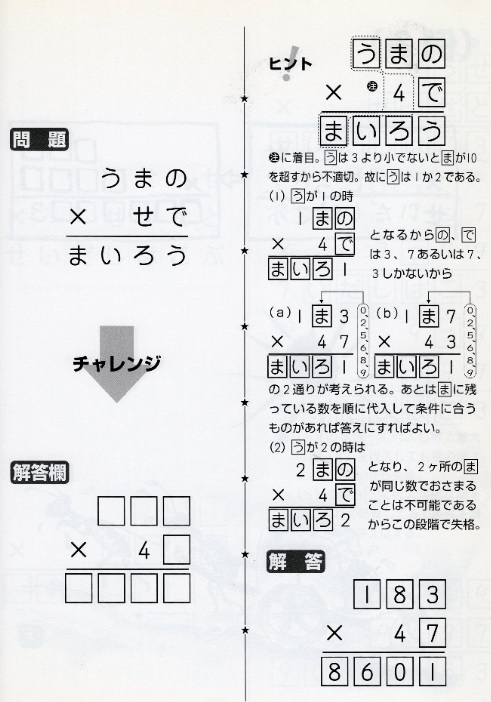 問題
うまの
× せで
まいろう
チャレンジ
解答欄
□□□
× 4□
□□□□
ヒント!
うまの
× 注 4で
まいろう
注に着目。うは3より小でないとまが10
を超すから不適切。故にうは1か2である。
(1) うが1の時
1まの
× 4で
まいろ1
となるからの、で
は3、7あるいは7、
3しかないから
(a) 1ま3
× 47
まいろ1
0、2、5、6、8、9
(b) 1ま7
× 43
まいろ1
0、2、5、6、8、9
の2通りが考えられる。あとはまに残
っている数を順に代入して条件に合う
ものがあれば答えにすればよい。
(2) うが2の時は
2まの
× 4で
まいろ2
となり、2ヶ所のま
が同じ数でおさまる
ことは不可能である
からこの段階で失格。
解答
183
× 47
8601